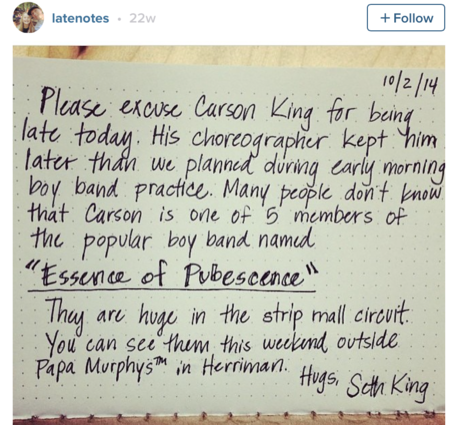 latenotes • 22w
+ Follow
10/2/14
Please excuse Carson King for being
late today. His choreographer kept him
later than we planned during early morning
boy band practice. Many people don't know
that Carson is one of 5 members of
the popular boy band named
"Essence of Pubescence"
They are huge in the strip mall circuit.
You can see them this weekend outside
Papa Murphy's™ in Herriman.
Hugs, Seth King